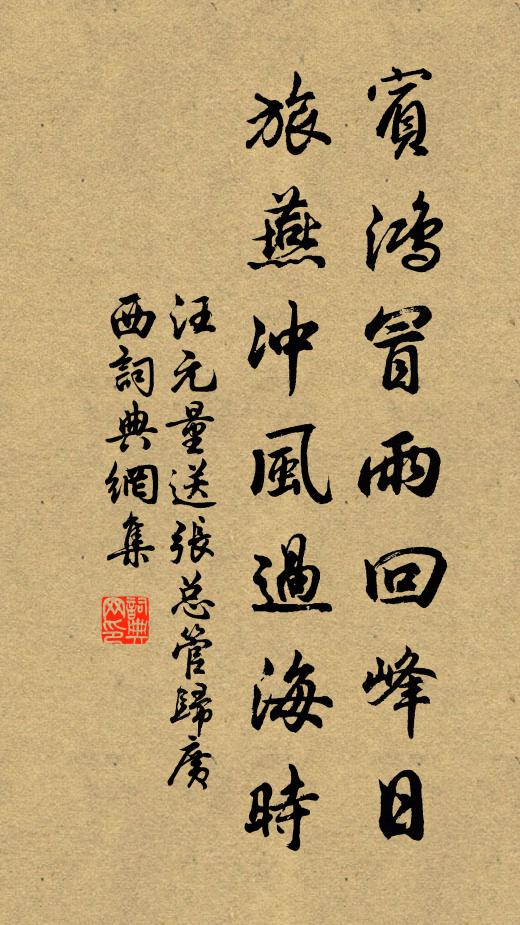 賓鴻冒雨回峰日
旅燕冲風過海時
汪元量送張总管歸廣
西詞典網集
詞典
网印